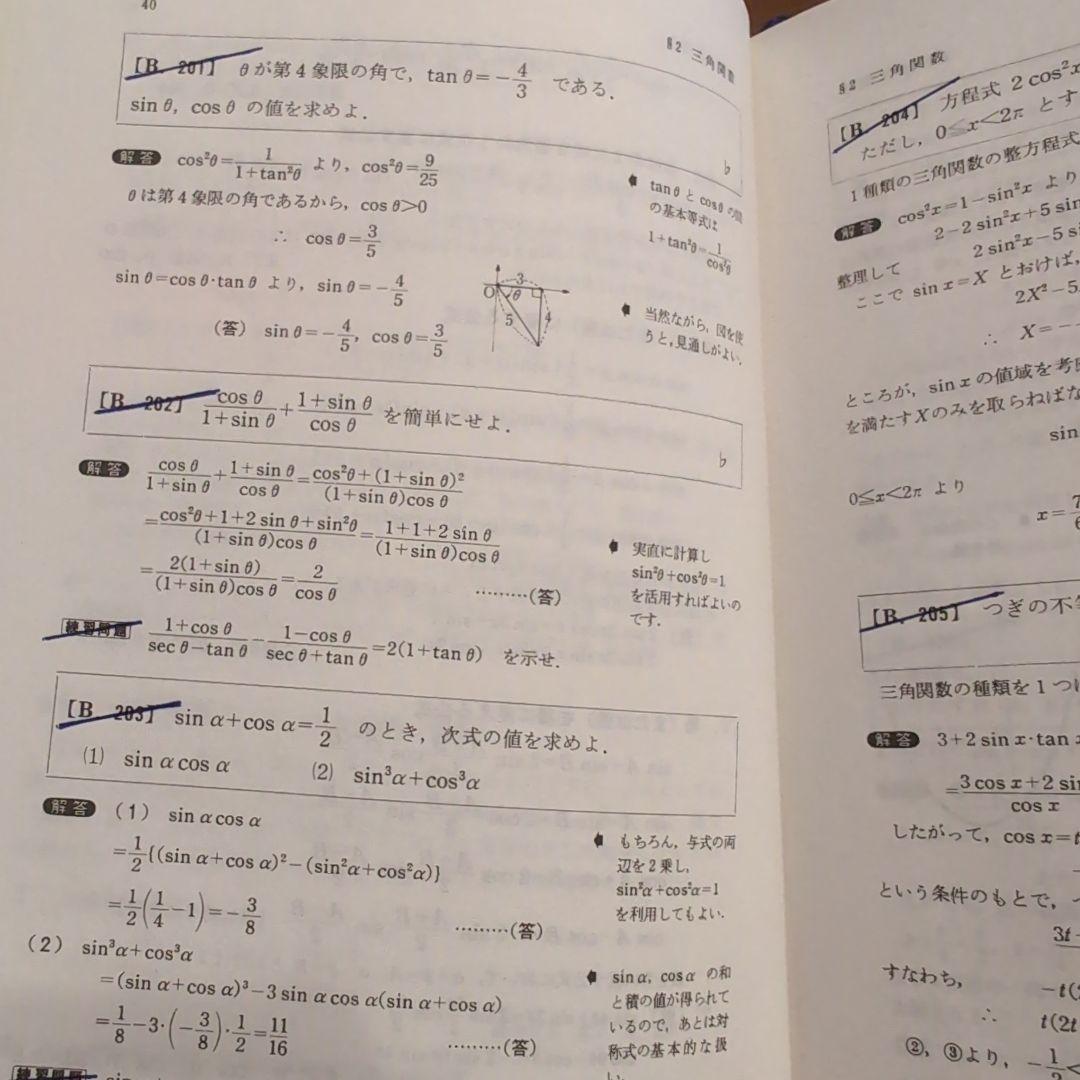 40
§2 三角関数
【B. 201】 θが第4象限の角で, tan θ=-4/3 である.
sin θ, cos θ の値を求めよ.
♭
解答 cos²θ=1/(1+tan²θ) より, cos²θ=9/25
θは第4象限の角であるから, cos θ>0
∴ cos θ=3/5
sin θ=cos θ·tan θ より, sin θ=-4/5
(答) sin θ=-4/5, cos θ=3/5
tan θ と cos θ の間
の基本等式は
1+tan²θ=1/cos²θ
O θ 3 4 5
当然ながら, 図を使
うと, 見通しがよい.
【B. 202】 cos θ/(1+sin θ)+(1+sin θ)/cos θ を簡単にせよ.
♭
解答 cos θ/(1+sin θ)+(1+sin θ)/cos θ=(cos²θ+(1+sin θ)²)/((1+sin θ)cos θ)
=(cos²θ+1+2 sin θ+sin²θ)/((1+sin θ)cos θ)=(1+1+2 sin θ)/((1+sin θ)cos θ)
=2(1+sin θ)/((1+sin θ)cos θ)=2/cos θ ………(答)
実直に計算し
sin²θ+cos²θ=1
を活用すればよいの
です.
練習問題 (1+cos θ)/(sec θ-tan θ)-(1-cos θ)/(sec θ+tan θ)=2(1+tan θ) を示せ.
【B. 203】 sin α+cos α=1/2 のとき, 次式の値を求めよ.
(1) sin α cos α (2) sin³α+cos³α
解答 (1) sin α cos α
=1/2{(sin α+cos α)²-(sin²α+cos²α)}
=1/2(1/4-1)=-3/8 ………(答)
もちろん, 与式の両
辺を2乗し,
sin²α+cos²α=1
を利用してもよい.
(2) sin³α+cos³α
=(sin α+cos α)³-3 sin α cos α(sin α+cos α)
=1/8-3·(-3/8)·1/2=11/16 ………(答)
sin α, cos α の和
と積の値が得られて
いるので, あとは対
称式の基本的な扱
練習問題
§2 三角関数
【B. 204】 方程式 2 cos²x
ただし, 0≦x<2π とす
1種類の三角関数の整方程式
解答 cos²x=1-sin²x より
2-2 sin²x+5 sin
2 sin²x-5 si
整理して
ここで sin x=X とおけば,
2X²-5
∴ X=-
ところが, sin x の値域を考
を満たすXのみを取らねばな
sin
0≦x<2π より
x=7/6
【B. 205】 つぎの不等
三角関数の種類を1つ
解答 3+2 sin x·tan
=(3 cos x+2 sin/cos x
したがって, cos x=t
という条件のもとで,
3t
すなわち,
-t(
∴ t(2t
②, ③より, -1/2<